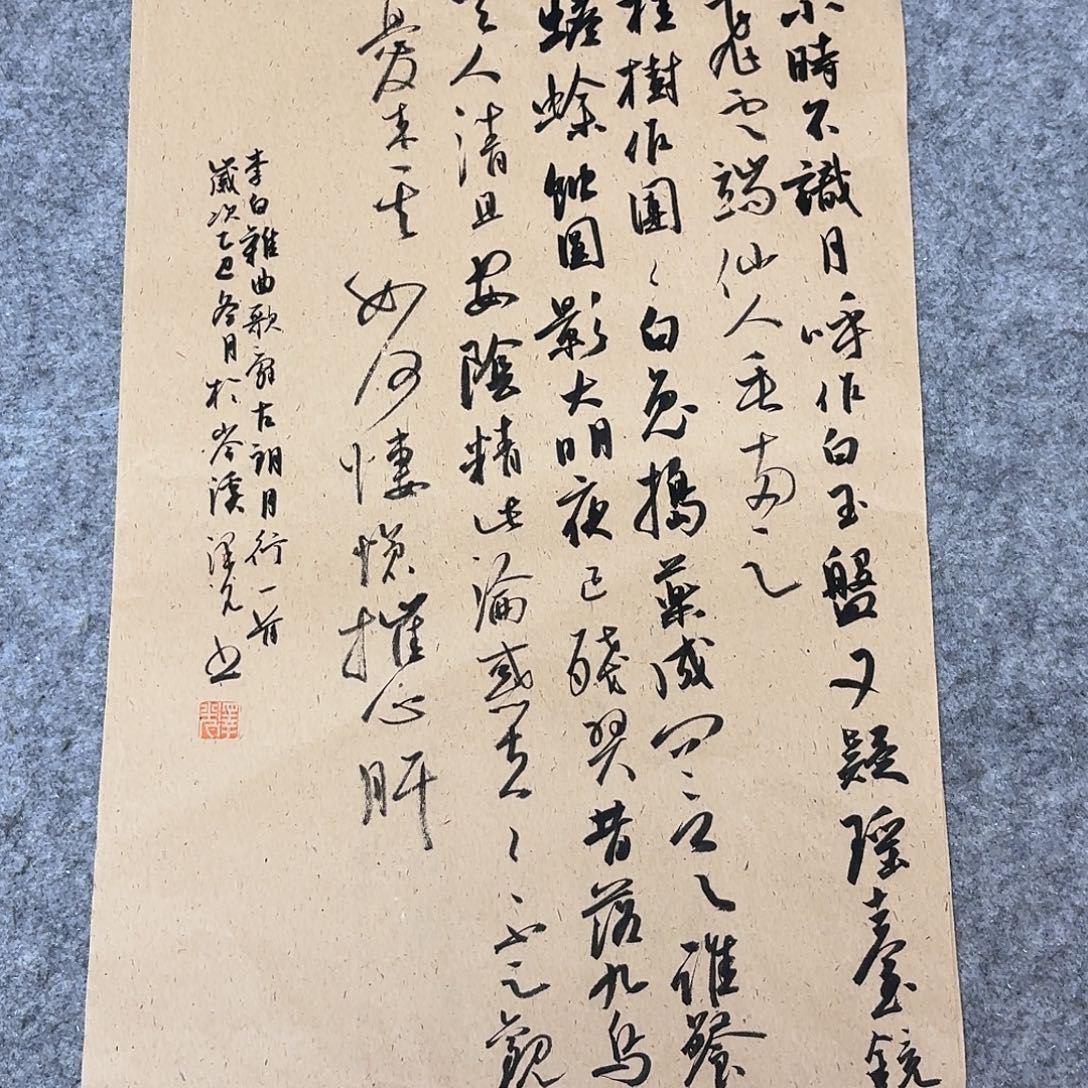 小時不識月呼作白玉盤又疑瑤臺鏡
雲端仙人垂兩足
桂樹作團々白兔搗藥成問言與誰餐
蟾蜍蝕圓影大明夜已殘羿昔落九烏
天人清且安陰精此淪惑去々不足觀
憂來其如何悽愴摧心肝
李白雜曲歌辭古朗月行一首
歲次乙巳冬月於岑溪書